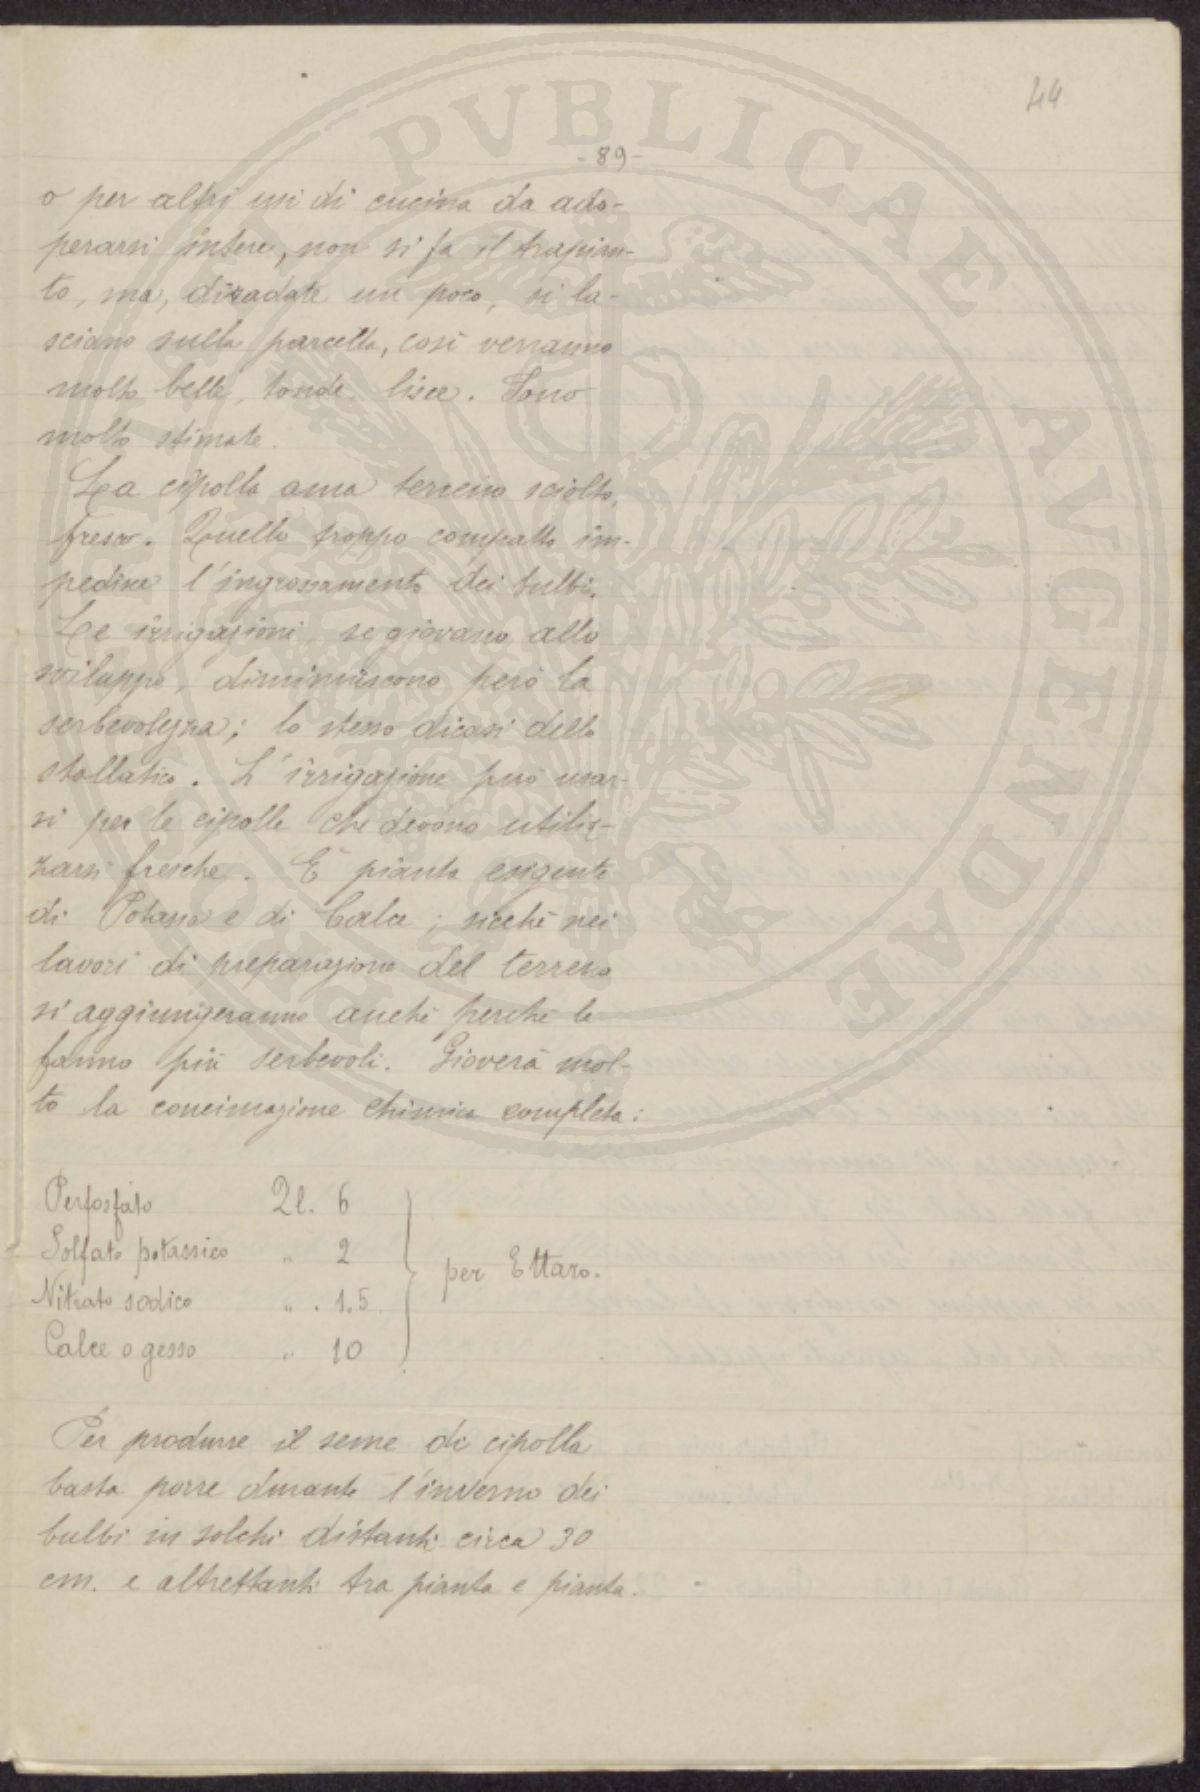 44
PUBLICAE AUGENDAE
- 89 -
o per altri usi di cucina da ado-
perarsi intere, non si fa il trapian-
to, ma, diradate un poco, si la-
sciano sulla parcella, così verranno
molto belle, tonde, lisce. Sono
molto stimate.
La cipolla ama terreno sciolto,
fresco. Quello troppo compatto im-
pedisce l'ingrossamento dei bulbi.
Le irrigazioni, se giovano allo
sviluppo, diminuiscono però la
serbevolezza; lo stesso dicasi dello
stallatico. L'irrigazione può usar-
si per le cipolle che devono utiliz-
zarsi fresche. È pianta esigente
di Potassa e di Calce; sicchè nei
lavori di preparazione del terreno
si aggiungeranno anche perchè le
fanno più serbevoli. Gioverà mol-
to la concimazione chimica completa:
Perfosfato Ql. 6
Solfato potassico „ 2
Nitrato sodico „ . 1.5
Calce o gesso „ 10
per Ettaro.
Per produrre il seme di cipolla
basta porre durante l'inverno dei
bulbi in solchi distanti circa 30
cm. e altrettanti tra pianta e pianta.